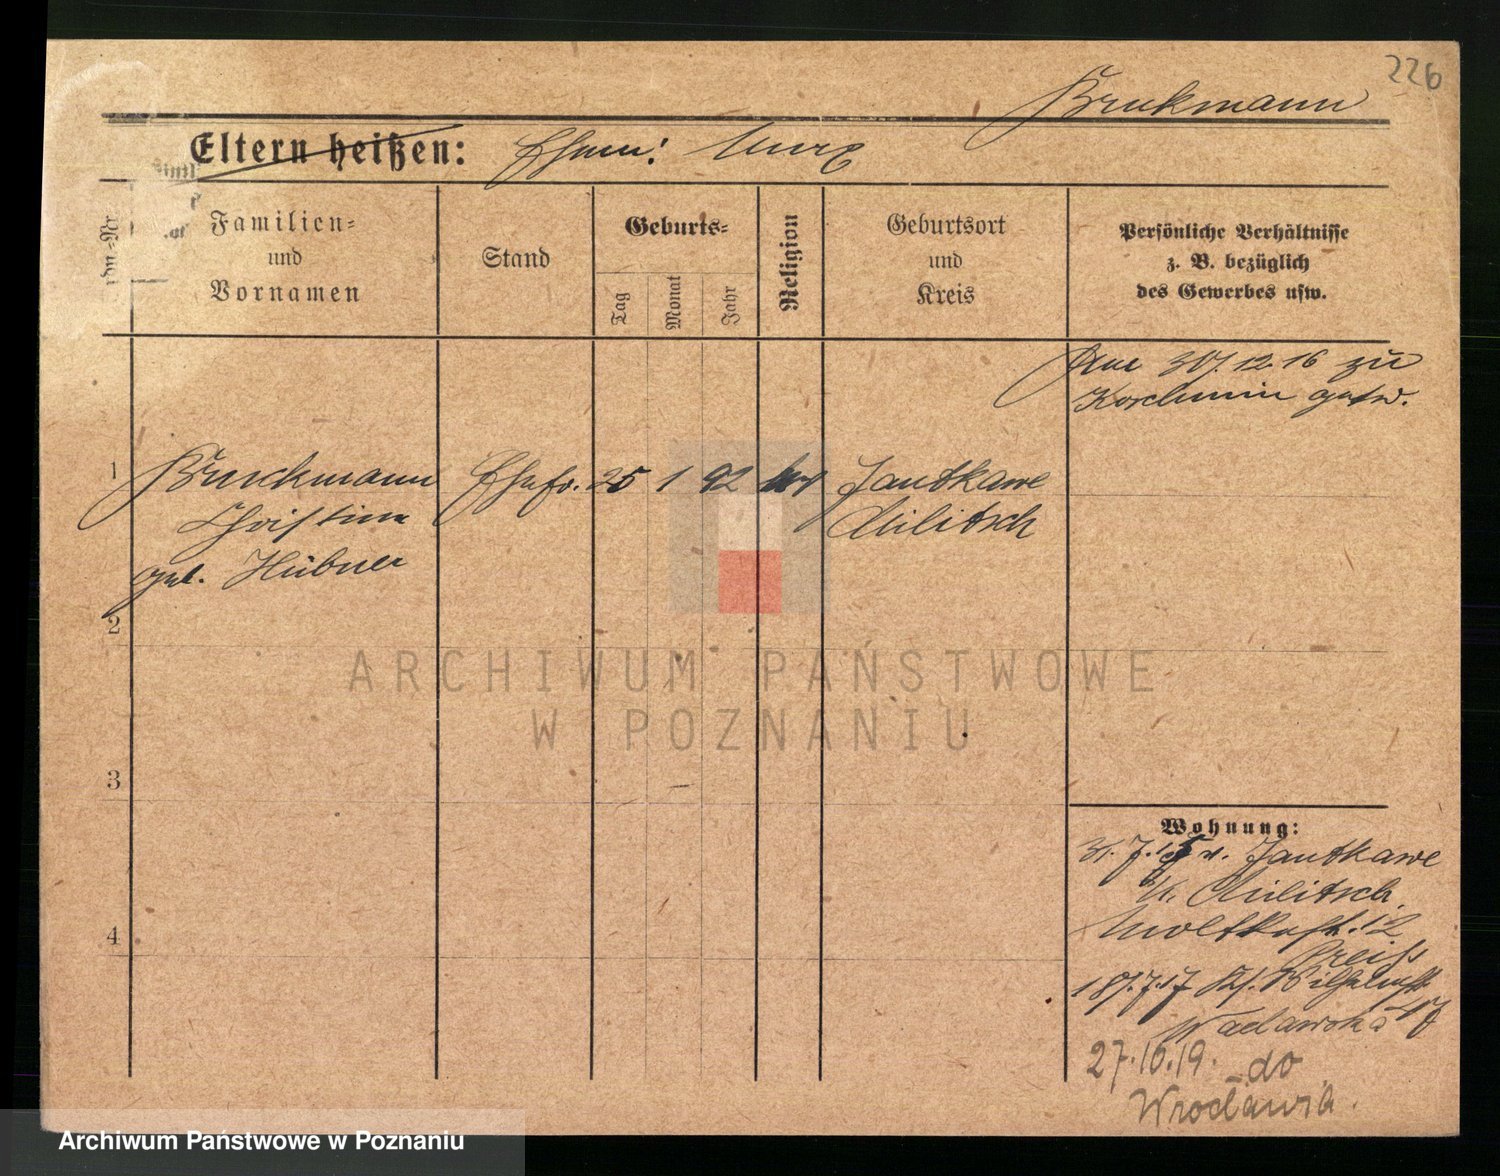 226
Bruckmann
Eltern heißen: Ehem: Marx
Familien=
und
Vornamen
Stand
Geburts=
Tag
Monat
Jahr
Religion
Geburtsort
und
Kreis
Persönliche Verhältnisse
z. B. bezüglich
des Gewerbes usw.
30/.12.16 zu
Koschmin
1
Bruckmann Ehefr. 25 1 92 Jantkawe
Christine Militsch
geb. Hübner
2
3
4
ARCHIWUM PAŃSTWOWE
W POZNANIU
Wohnung:
31.7.15 v. Jantkawe
Militsch
Moltkestr. 12
Preiss
18/.7.17 Kl. Wilhelmstr.
17
Waclawska
27.10.19. do
Wrocławia.
Archiwum Państwowe w Poznaniu